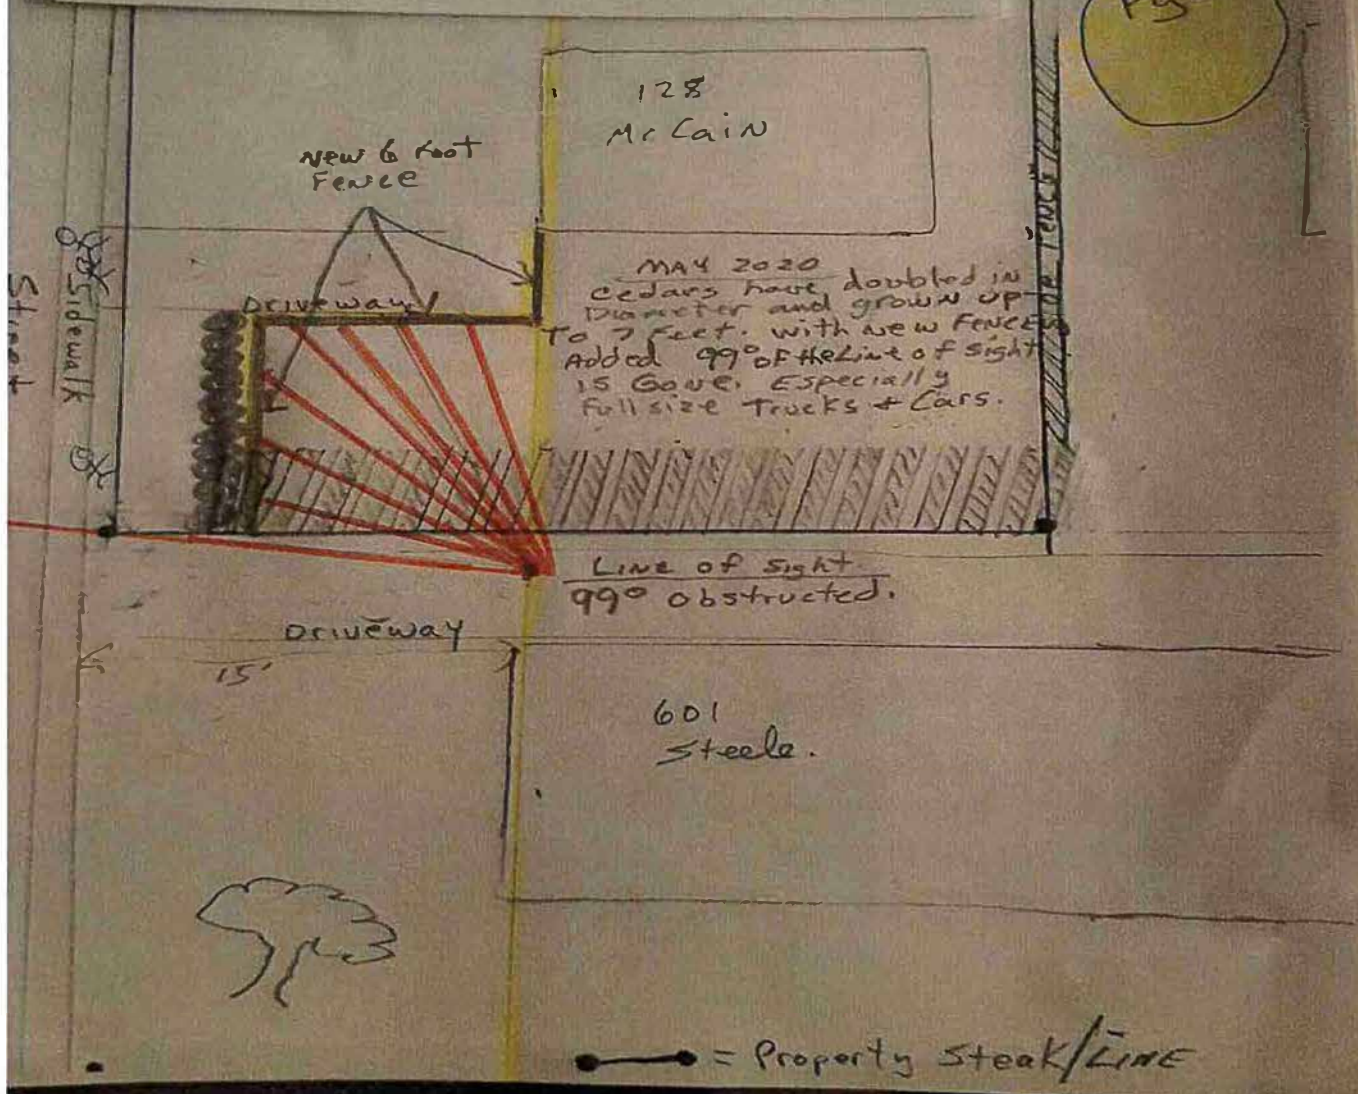 Py
128
McCain
New 6 Foot
Fence
Driveway
Sidewalk
Street
MAY 2020
Cedars have doubled in
Diameter and grown up
To 7 Feet. with New Fences
Added 99° of the Line of Sight
is Gone. Especially
Full size Trucks + Cars.
Line of Sight
99° obstructed.
Driveway
15'
601
Steele.
= Property Steak/LINE